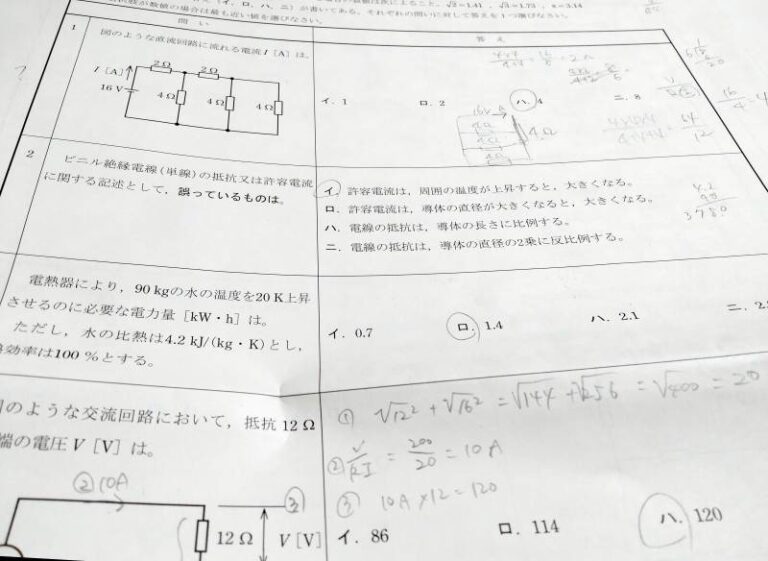 数値の場合は最も近い値を選びなさい。
(イ, ロ, ハ, ニ)が書いてある。それぞれの問いに対して答えを1つ選びなさい。
問 い
答 え
1
図のような直流回路に流れる電流 I [A] は。
I [A]
2Ω
2Ω
16 V
4Ω
4Ω
4Ω
イ. 1
ロ. 2
ハ. 4
ニ. 8
16V
4Ω
4Ω
4Ω
16/4 = 4
64/12
2
ビニル絶縁電線(単線)の抵抗又は許容電流
に関する記述として，誤っているものは。
イ. 許容電流は，周囲の温度が上昇すると，大きくなる。
ロ. 許容電流は，導体の直径が大きくなると，大きくなる。
ハ. 電線の抵抗は，導体の長さに比例する。
ニ. 電線の抵抗は，導体の直径の2乗に反比例する。
4.2
90
3780
電熱器により，90 kgの水の温度を20 K上昇
させるのに必要な電力量 [kW・h] は。
ただし，水の比熱は4.2 kJ/(kg・K)とし，
効率は100 %とする。
イ. 0.7
ロ. 1.4
ハ. 2.1
ニ. 2.
のような交流回路において，抵抗 12 Ω
端の電圧 V [V] は。
① √12² + √16² = √144 + √256 = √400 = 20
② = 200/20 = 10A
③ 10A×12=120
イ. 86
ロ. 114
ハ. 120
② 10A
③
12 Ω
V [V]